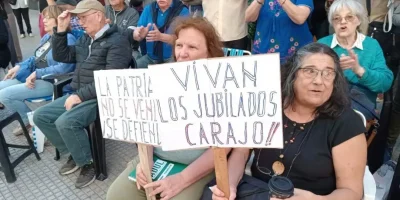 LA PATRIA
NO SE VEN
¡SE DEFIEN
VIVAN
LOS JUBILADOS
CARAJO!!